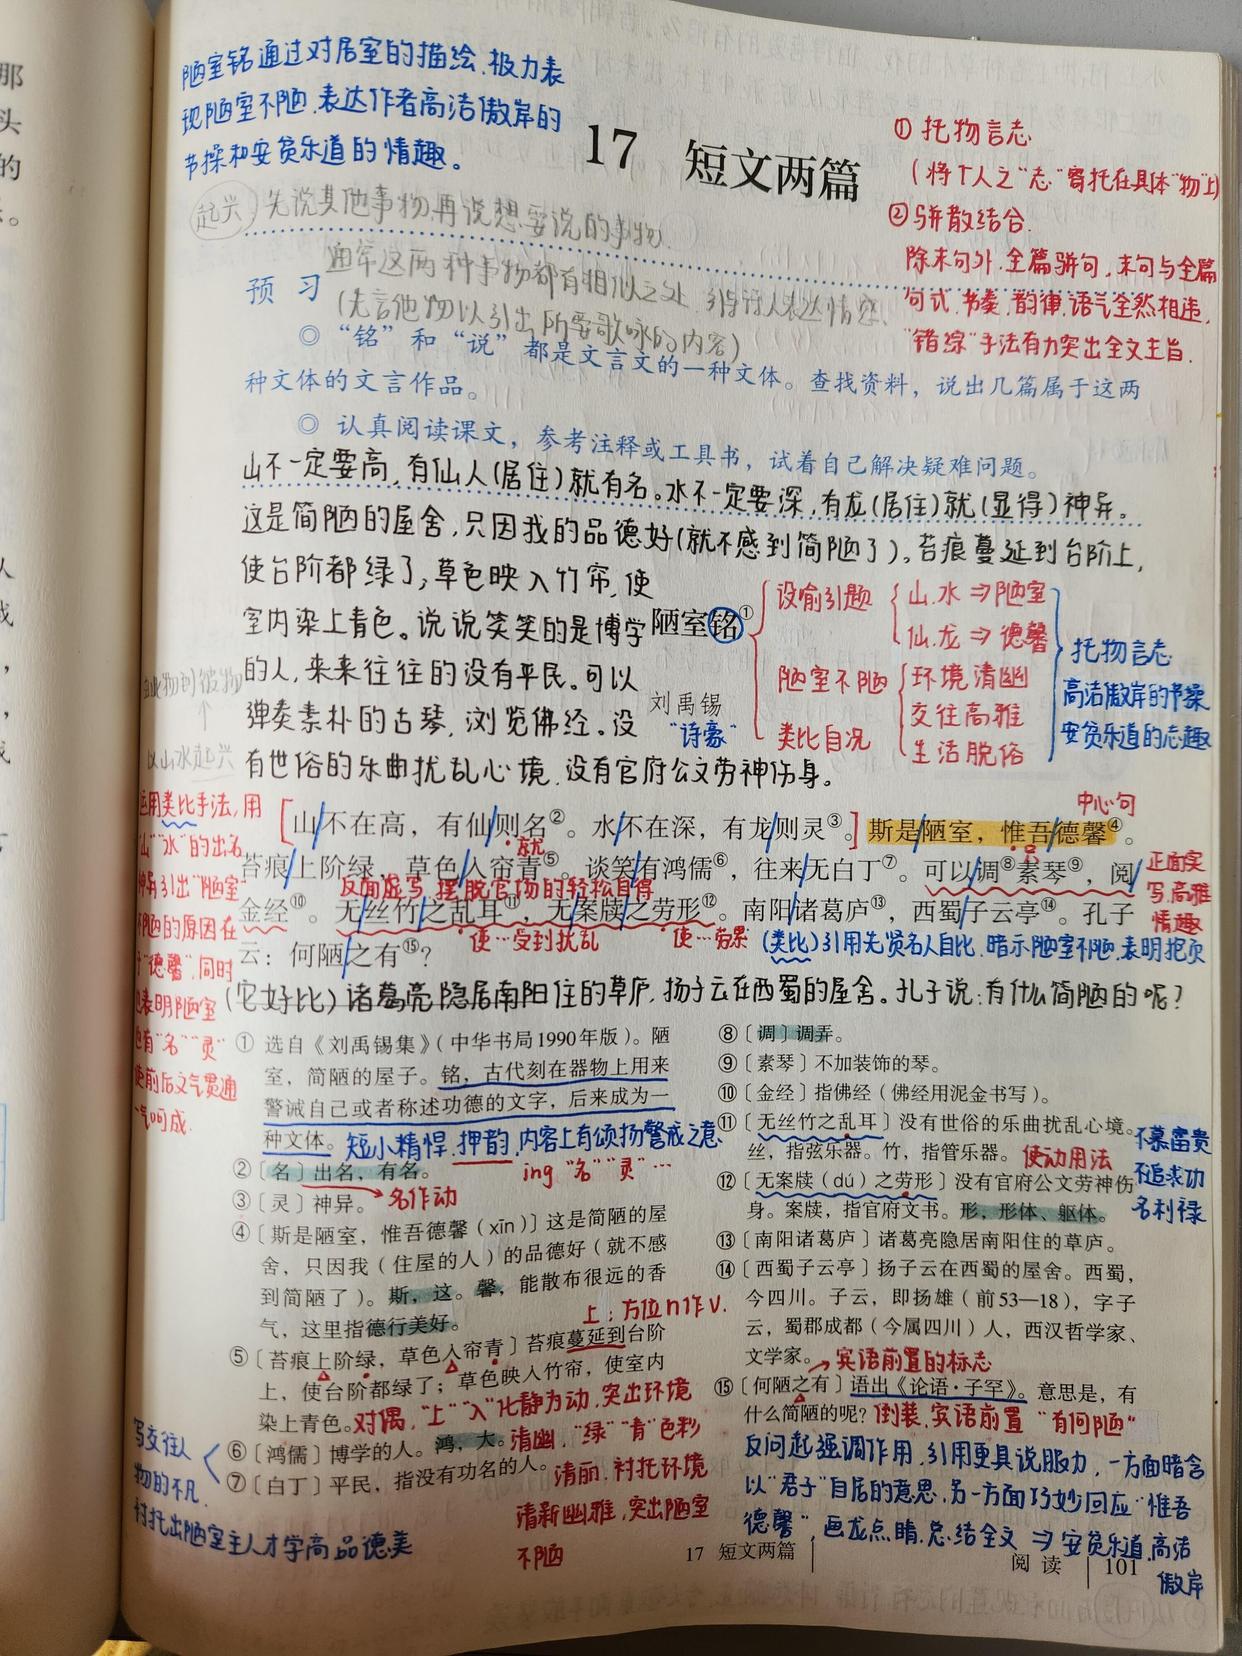 那
头
的
陋室铭通过对居室的描绘,极力表
现陋室不陋,表达作者高洁傲岸的
节操和安贫乐道的情趣。
17 短文两篇
①托物言志
(将个人之“志”寄托在具体“物”上)
②骈散结合
除末句外,全篇骈句,末句与全篇
句式,节奏,韵律,语气全然相违,
“错综”手法有力突出全文主旨.
起兴 先说其他事物,再说想要说的事物.
通常这两种事物都有相似之处,引诗人表达情感、
(先言他物以引出所要歌咏的内容)
预习
◎ “铭”和“说”都是文言文的一种文体。查找资料,说出几篇属于这两
种文体的文言作品。
◎ 认真阅读课文,参考注释或工具书,试着自己解决疑难问题。
山不一定要高,有仙人(居住)就有名。水不一定要深,有龙(居住)就(显得)神异。
这是简陋的屋舍,只因我的品德好(就不感到简陋了)。苔痕蔓延到台阶上,
使台阶都绿了;草色映入竹帘,使
室内染上青色。说说笑笑的是博学
的人,来来往往的没有平民。可以
弹奏素朴的古琴,浏览佛经。没
有世俗的乐曲扰乱心境,没有官府公文劳神伤身。
陋室铭①
刘禹锡
“诗豪”
设喻引题
山.水⇒陋室
仙.龙⇒德馨
陋室不陋
环境清幽
交往高雅
生活脱俗
类比自况
托物言志
高洁傲岸的节操
安贫乐道的志趣
物到彼物
以山水起兴
运用类比手法,用
“山”“水”的出名
神异引出“陋室”
不陋的原因在
于“德馨”,同时
也表明陋室
也有“名”“灵”
使前后文气贯通
一气呵成.
中心句
[山/不在高,有仙/则名②。水/不在深,有龙/则灵③。]斯是/陋室,惟吾/德馨④。
就
苔痕/上阶绿,草色/入帘青⑤。谈笑/有鸿儒⑥,往来/无白丁⑦。可以/调⑧素琴⑨,阅/
反面虚写 摆脱官场的轻松自得
正面实
写高雅
情趣
金经⑩。无/丝竹/之乱耳⑪,无/案牍/之劳形⑫。南阳/诸葛庐⑬,西蜀/子云亭⑭。孔子
使…受到扰乱
使…劳累
(类比)引用先贤名人自比,暗示陋室不陋,表明抱负
云:何陋/之有⑮?
(它好比)诸葛亮隐居南阳住的草庐,扬子云在西蜀的屋舍。孔子说:有什么简陋的呢?
① 选自《刘禹锡集》(中华书局1990年版)。陋
室,简陋的屋子。铭,古代刻在器物上用来
警诫自己或者称述功德的文字,后来成为一
种文体。短小精悍,押韵,内容上有颂扬警戒之意
ing “名”“灵”…
②〔名〕出名,有名。
名作动
③〔灵〕神异。
④〔斯是陋室,惟吾德馨(xīn)〕这是简陋的屋
舍,只因我(住屋的人)的品德好(就不感
到简陋了)。斯,这。馨,能散布很远的香
气,这里指德行美好。
上:方位n作v.
⑤〔苔痕上阶绿,草色入帘青〕苔痕蔓延到台阶
上,使台阶都绿了;草色映入竹帘,使室内
染上青色。对偶,“上”“入”化静为动,突出环境
清幽,“绿”“青”色彩
清丽,衬托环境
清新幽雅,突出陋室
不陋
⑥〔鸿儒〕博学的人。鸿,大。
⑦〔白丁〕平民,指没有功名的人。
写交往人
物的不凡,
衬托出陋室主人才学高品德美
⑧〔调〕调弄。
⑨〔素琴〕不加装饰的琴。
⑩〔金经〕指佛经(佛经用泥金书写)。
⑪〔无丝竹之乱耳〕没有世俗的乐曲扰乱心境。
丝,指弦乐器。竹,指管乐器。 使动用法
⑫〔无案牍(dú)之劳形〕没有官府公文劳神伤
身。案牍,指官府文书。形,形体、躯体。
不慕富贵
不追求功
名利禄
⑬〔南阳诸葛庐〕诸葛亮隐居南阳住的草庐。
⑭〔西蜀子云亭〕扬子云在西蜀的屋舍。西蜀,
今四川。子云,即扬雄(前53—18),字子
云,蜀郡成都(今属四川)人,西汉哲学家、
文学家。
宾语前置的标志
⑮〔何陋之有〕语出《论语·子罕》。意思是,有
什么简陋的呢?倒装,宾语前置 “有何陋”
反问起强调作用,引用更具说服力,一方面暗含
以“君子”自居的意思,另一方面巧妙回应“惟吾
德馨”,画龙点睛,总结全文⇒安贫乐道,高洁
傲岸
17 短文两篇
阅读 101